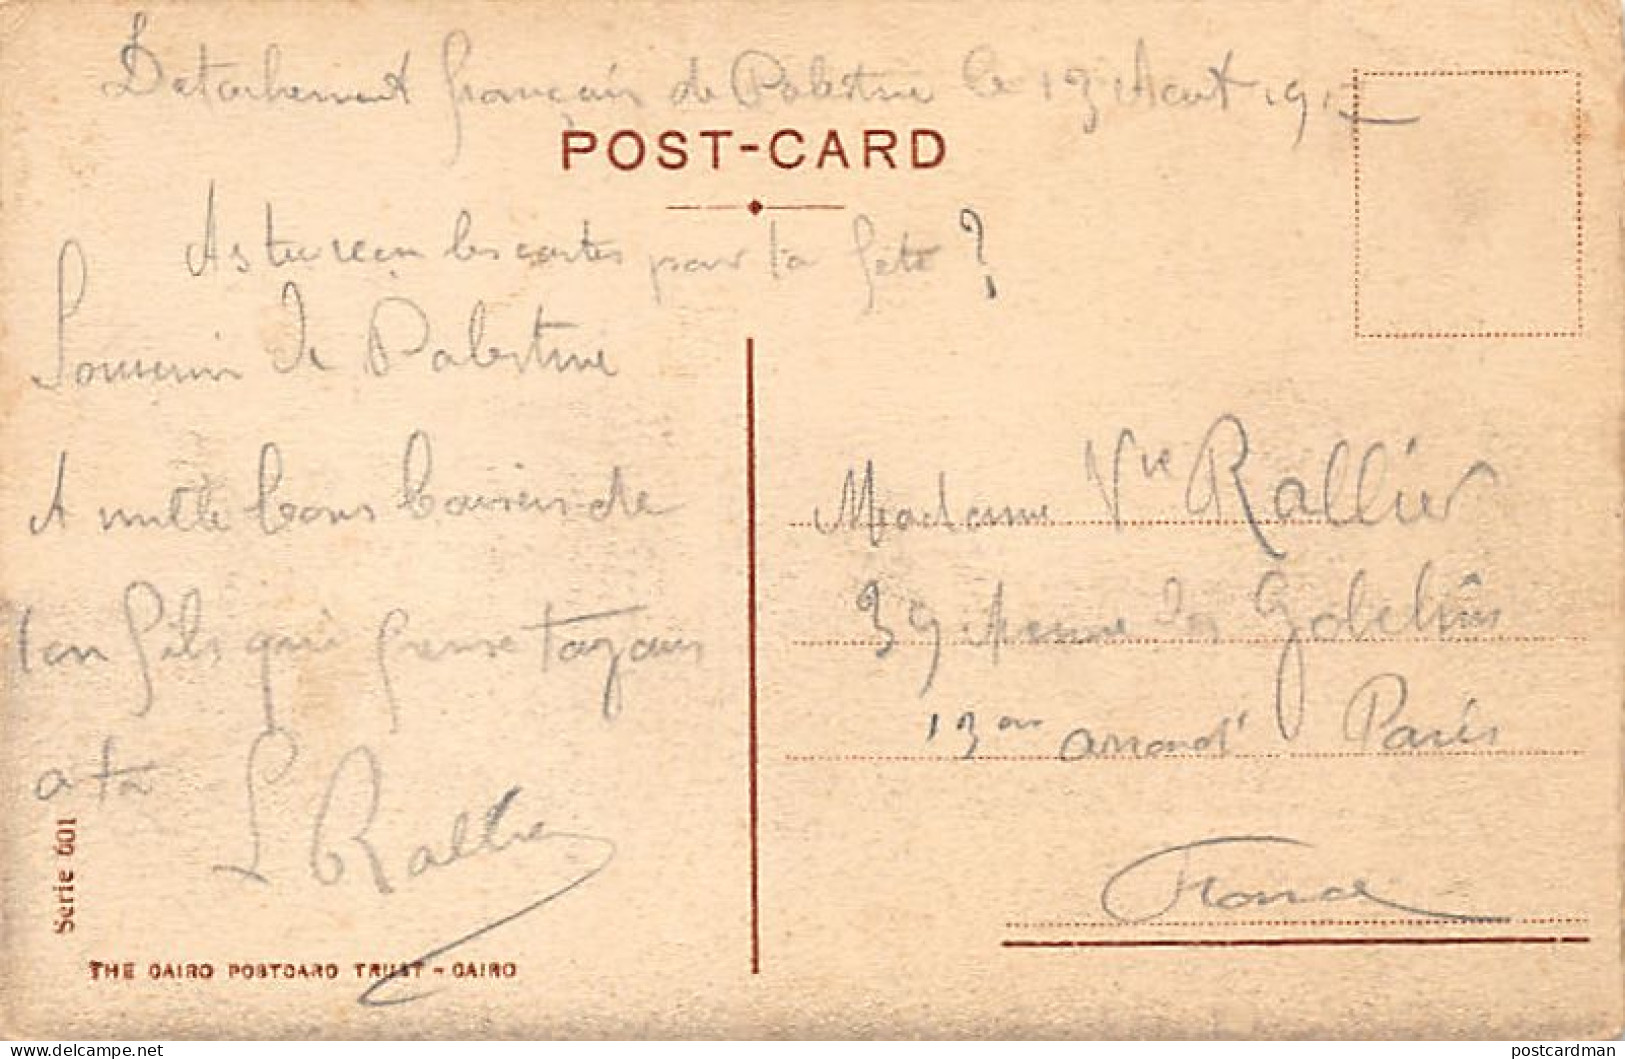 Detachement français de Palestine le 13 Aout 191
POST-CARD
As tu reçu les cartes pour ta fête ?
Souvenir de Palestine
A mille bons baisers de
ton fils qui pense toujours
a toi
L Rallier
Serie 601
THE CAIRO POSTCARD TRUST - CAIRO
Madame Vve Rallier
39 Avenue des Gobelins
13em arrond^t Paris
France
delcampe.net
postcardman